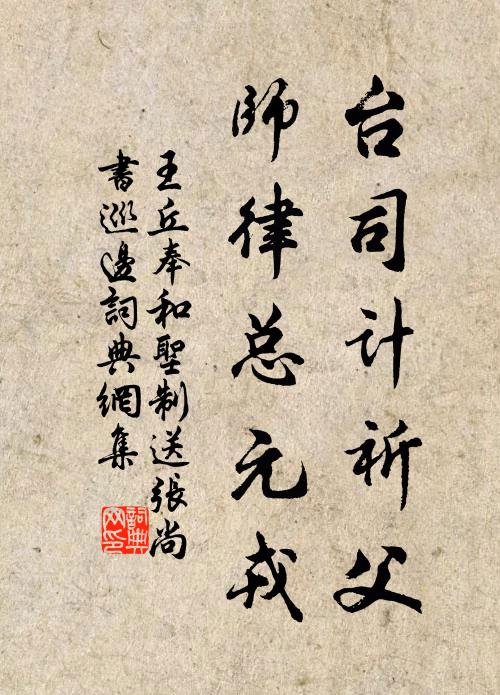 台司计祈父
师律总元戎
王丘奉和聖制送張尚
書巡邊詞典網集
詞典
网印